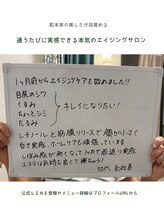 肌本来の美しさが目覚める
通うたびに実感できる本気のエイジングサロン
1ヶ月前からエイジングケアを始めました!!
目尻のシワ
くすみ
ちょっとシミ
たるみ
キレイになりたい!
レチノールと筋膜リリースで顔がハリ
白で実感。ホームケアも頑張っている
いまお肌が
エステは気持ち良くて
50代 会社員
公式LINE登録やメニュー詳細はプロフィールURLから